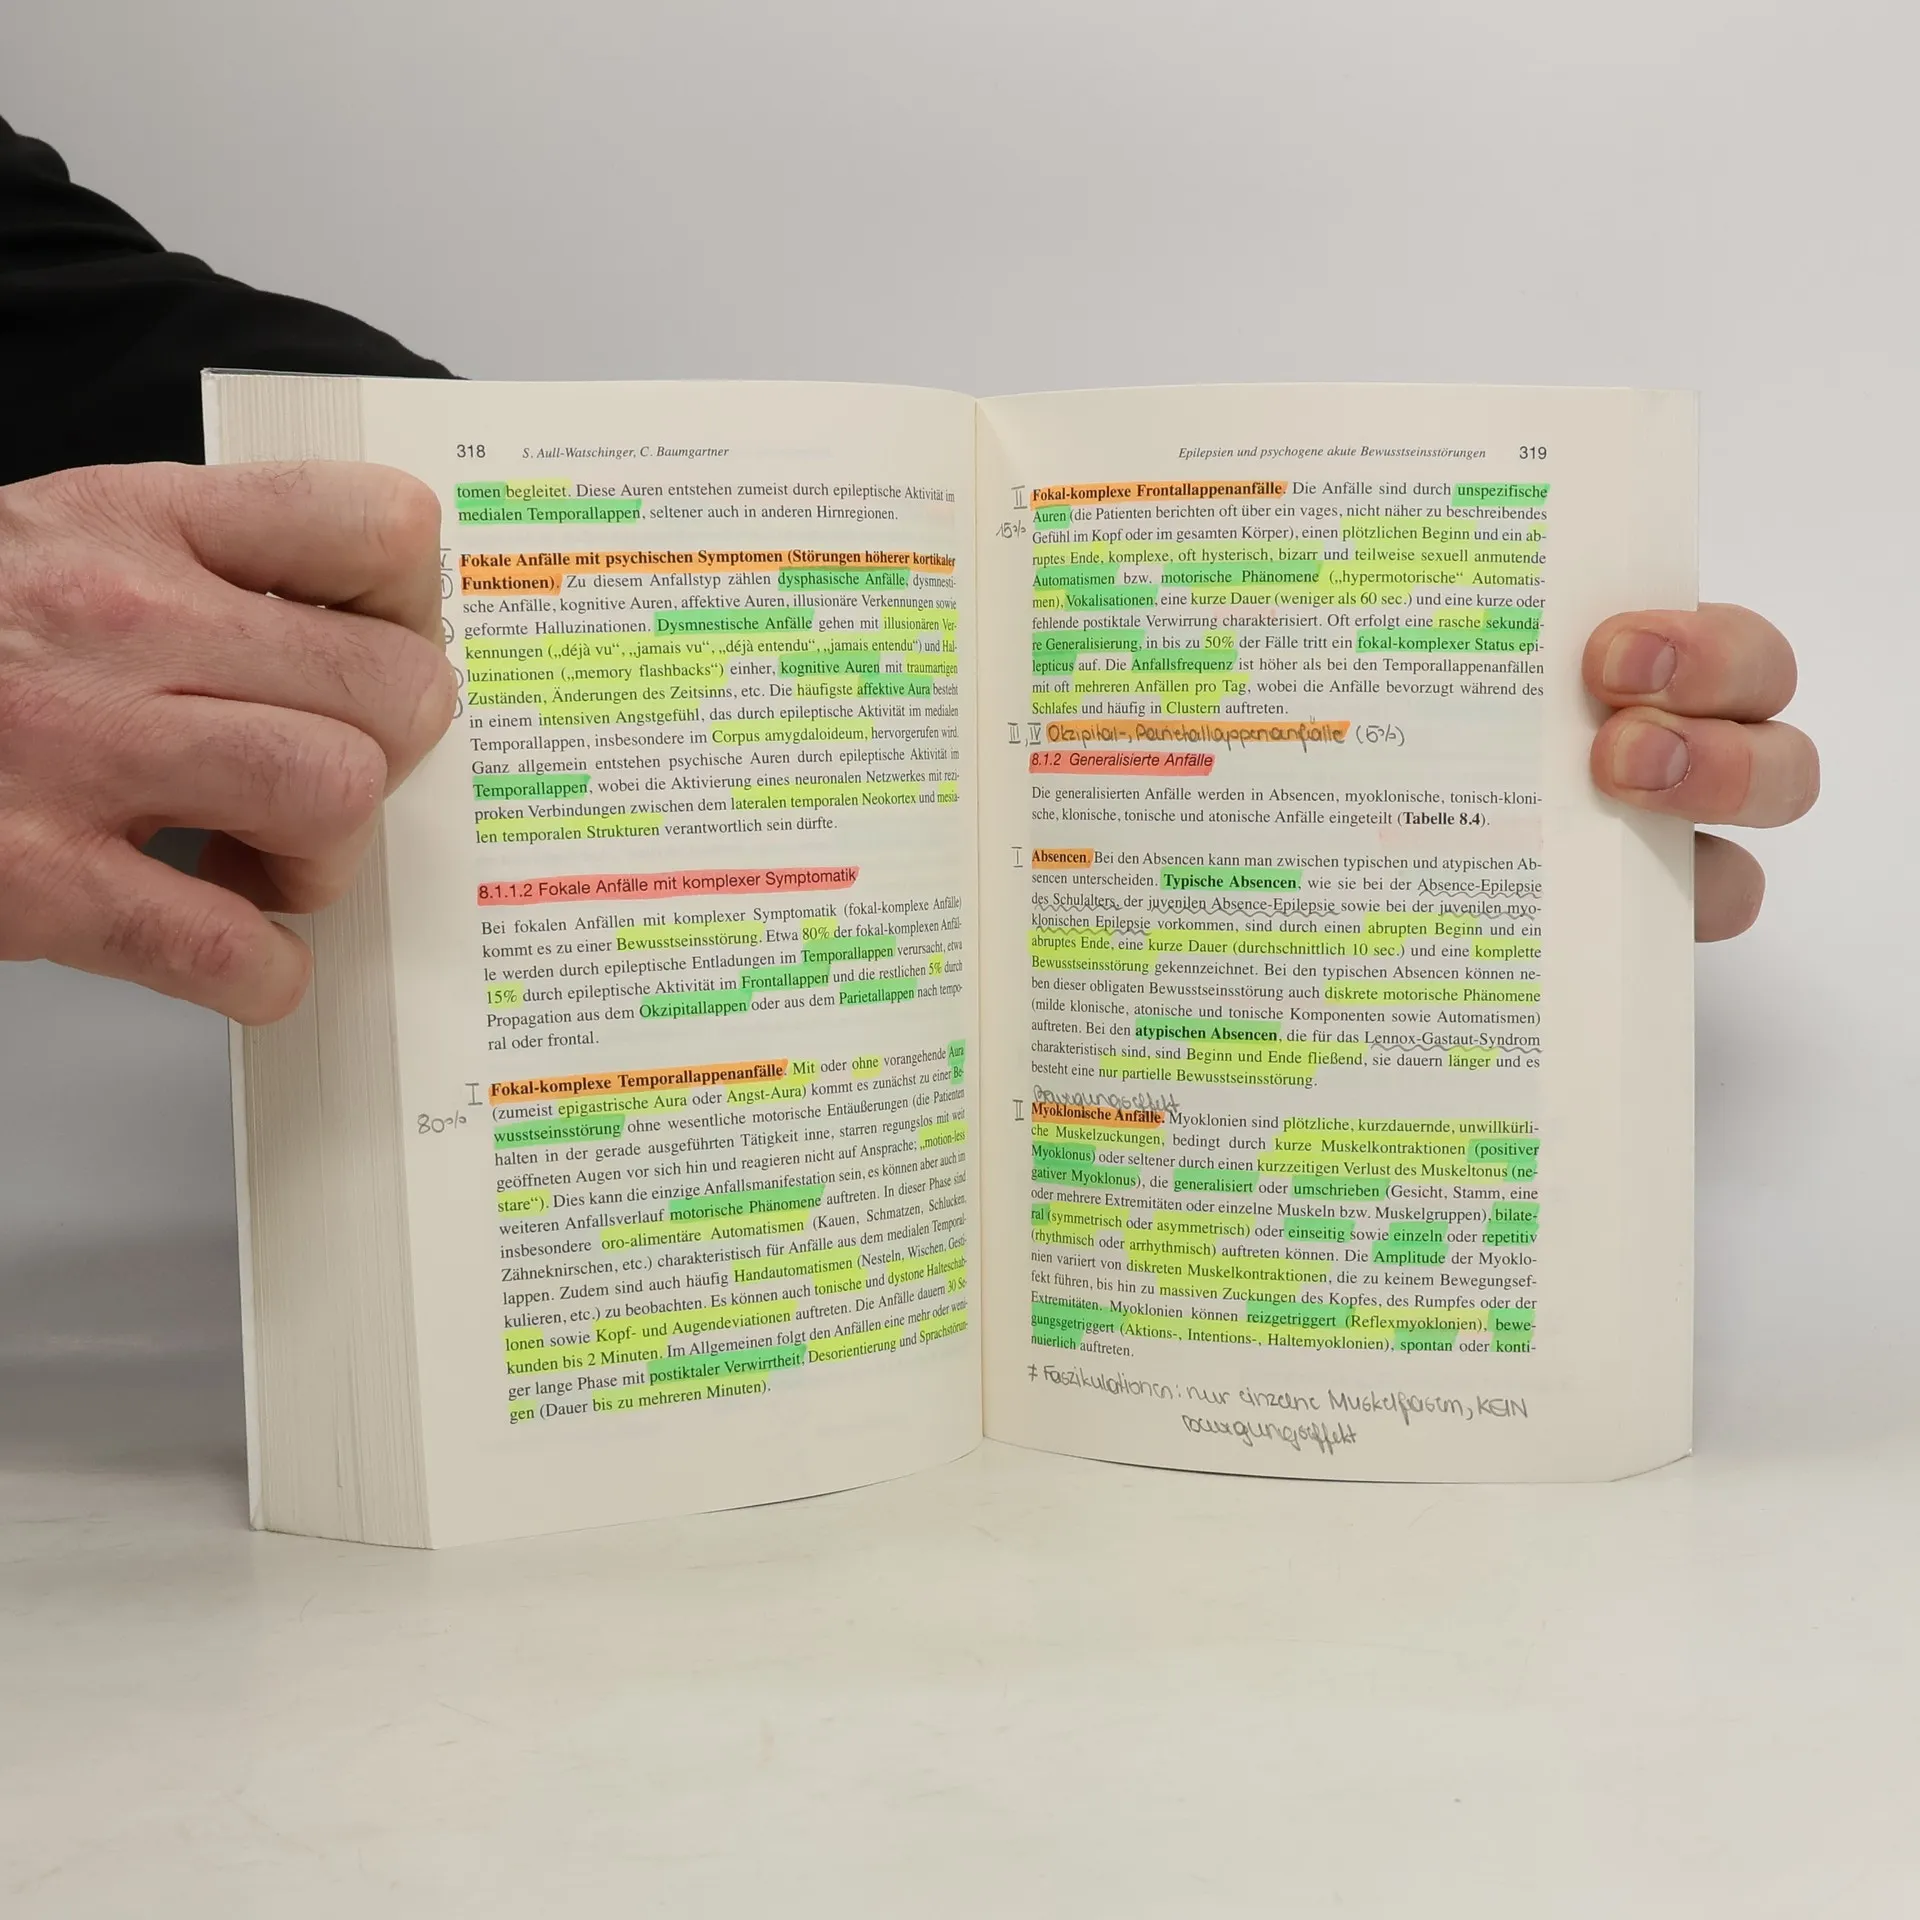 318 S. Aull-Watschinger, C. Baumgartner
tomen begleitet. Diese Auren entstehen zumeist durch epileptische Aktivität im
medialen Temporallappen, seltener auch in anderen Hirnregionen.
Fokale Anfälle mit psychischen Symptomen (Störungen höherer kortikaler
Funktionen). Zu diesem Anfallstyp zählen dysphasische Anfälle, dysmnesti-
sche Anfälle, kognitive Auren, affektive Auren, illusionäre Verkennungen sowie
geformte Halluzinationen. Dysmnestische Anfälle gehen mit illusionären Ver-
kennungen („déjà vu“, „jamais vu“, „déjà entendu“, „jamais entendu“) und Hal-
luzinationen („memory flashbacks“) einher, kognitive Auren mit traumartigen
Zuständen, Änderungen des Zeitsinns, etc. Die häufigste affektive Aura besteht
in einem intensiven Angstgefühl, das durch epileptische Aktivität im medialen
Temporallappen, insbesondere im Corpus amygdaloideum, hervorgerufen wird.
Ganz allgemein entstehen psychische Auren durch epileptische Aktivität im
Temporallappen, wobei die Aktivierung eines neuronalen Netzwerkes mit rezi-
proken Verbindungen zwischen dem lateralen temporalen Neokortex und mesia-
len temporalen Strukturen verantwortlich sein dürfte.
8.1.1.2 Fokale Anfälle mit komplexer Symptomatik
Bei fokalen Anfällen mit komplexer Symptomatik (fokal-komplexe Anfälle)
kommt es zu einer Bewusstseinsstörung. Etwa 80% der fokal-komplexen Anfäl-
le werden durch epileptische Entladungen im Temporallappen verursacht, etwa
15% durch epileptische Aktivität im Frontallappen und die restlichen 5% durch
Propagation aus dem Okzipitallappen oder aus dem Parietallappen nach tempo-
ral oder frontal.
I Fokal-komplexe Temporallappenanfälle. Mit oder ohne vorangehende Aura
80% (zumeist epigastrische Aura oder Angst-Aura) kommt es zunächst zu einer Be-
wusstseinsstörung ohne wesentliche motorische Entäußerungen (die Patienten
halten in der gerade ausgeführten Tätigkeit inne, starren regungslos mit weit
geöffneten Augen vor sich hin und reagieren nicht auf Ansprache; „motion-less
stare“). Dies kann die einzige Anfallsmanifestation sein, es können aber auch im
weiteren Anfallsverlauf motorische Phänomene auftreten. In dieser Phase sind
insbesondere oro-alimentäre Automatismen (Kauen, Schmatzen, Schlucken,
Zähneknirschen, etc.) charakteristisch für Anfälle aus dem medialen Temporal-
lappen. Zudem sind auch häufig Handautomatismen (Nesteln, Wischen, Gesti-
kulieren, etc.) zu beobachten. Es können auch tonische und dystone Halteschab-
lonen sowie Kopf- und Augendeviationen auftreten. Die Anfälle dauern 30 Se-
kunden bis 2 Minuten. Im Allgemeinen folgt den Anfällen eine mehr oder weni-
ger lange Phase mit postiktaler Verwirrtheit, Desorientierung und Sprachstörun-
gen (Dauer bis zu mehreren Minuten).
Epilepsien und psychogene akute Bewusstseinsstörungen 319
II Fokal-komplexe Frontallappenanfälle. Die Anfälle sind durch unspezifische
Auren (die Patienten berichten oft über ein vages, nicht näher zu beschreibendes
15% Gefühl im Kopf oder im gesamten Körper), einen plötzlichen Beginn und ein ab-
ruptes Ende, komplexe, oft hysterisch, bizarr und teilweise sexuell anmutende
Automatismen bzw. motorische Phänomene („hypermotorische“ Automatis-
men), Vokalisationen, eine kurze Dauer (weniger als 60 sec.) und eine kurze oder
fehlende postiktale Verwirrung charakterisiert. Oft erfolgt eine rasche sekundä-
re Generalisierung, in bis zu 50% der Fälle tritt ein fokal-komplexer Status epi-
lepticus auf. Die Anfallsfrequenz ist höher als bei den Temporallappenanfällen
mit oft mehreren Anfällen pro Tag, wobei die Anfälle bevorzugt während des
Schlafes und häufig in Clustern auftreten.
III, IV Okzipital-, Parietallappenanfälle (5%)
8.1.2 Generalisierte Anfälle
Die generalisierten Anfälle werden in Absencen, myoklonische, tonisch-kloni-
sche, klonische, tonische und atonische Anfälle eingeteilt (Tabelle 8.4).
I Absencen. Bei den Absencen kann man zwischen typischen und atypischen Ab-
sencen unterscheiden. Typische Absencen, wie sie bei der Absence-Epilepsie
des Schulalters, der juvenilen Absence-Epilepsie sowie bei der juvenilen myo-
klonischen Epilepsie vorkommen, sind durch einen abrupten Beginn und ein
abruptes Ende, eine kurze Dauer (durchschnittlich 10 sec.) und eine komplette
Bewusstseinsstörung gekennzeichnet. Bei den typischen Absencen können ne-
ben dieser obligaten Bewusstseinsstörung auch diskrete motorische Phänomene
(milde klonische, atonische und tonische Komponenten sowie Automatismen)
auftreten. Bei den atypischen Absencen, die für das Lennox-Gastaut-Syndrom
charakteristisch sind, sind Beginn und Ende fließend, sie dauern länger und es
besteht eine nur partielle Bewusstseinsstörung.
Bewegungseffekt
II Myoklonische Anfälle. Myoklonien sind plötzliche, kurzdauernde, unwillkürli-
che Muskelzuckungen, bedingt durch kurze Muskelkontraktionen (positiver
Myoklonus) oder seltener durch einen kurzzeitigen Verlust des Muskeltonus (ne-
gativer Myoklonus), die generalisiert oder umschrieben (Gesicht, Stamm, eine
oder mehrere Extremitäten oder einzelne Muskeln bzw. Muskelgruppen), bilate-
ral (symmetrisch oder asymmetrisch) oder einseitig sowie einzeln oder repetitiv
(rhythmisch oder arrhythmisch) auftreten können. Die Amplitude der Myoklo-
nien variiert von diskreten Muskelkontraktionen, die zu keinem Bewegungsef-
fekt führen, bis hin zu massiven Zuckungen des Kopfes, des Rumpfes oder der
Extremitäten. Myoklonien können reizgetriggert (Reflexmyoklonien), bewe-
gungsgetriggert (Aktions-, Intentions-, Haltemyoklonien), spontan oder konti-
nuierlich auftreten.
≠ Faszikulationen: nur einzelne Muskelfasern, KEIN
Bewegungseffekt